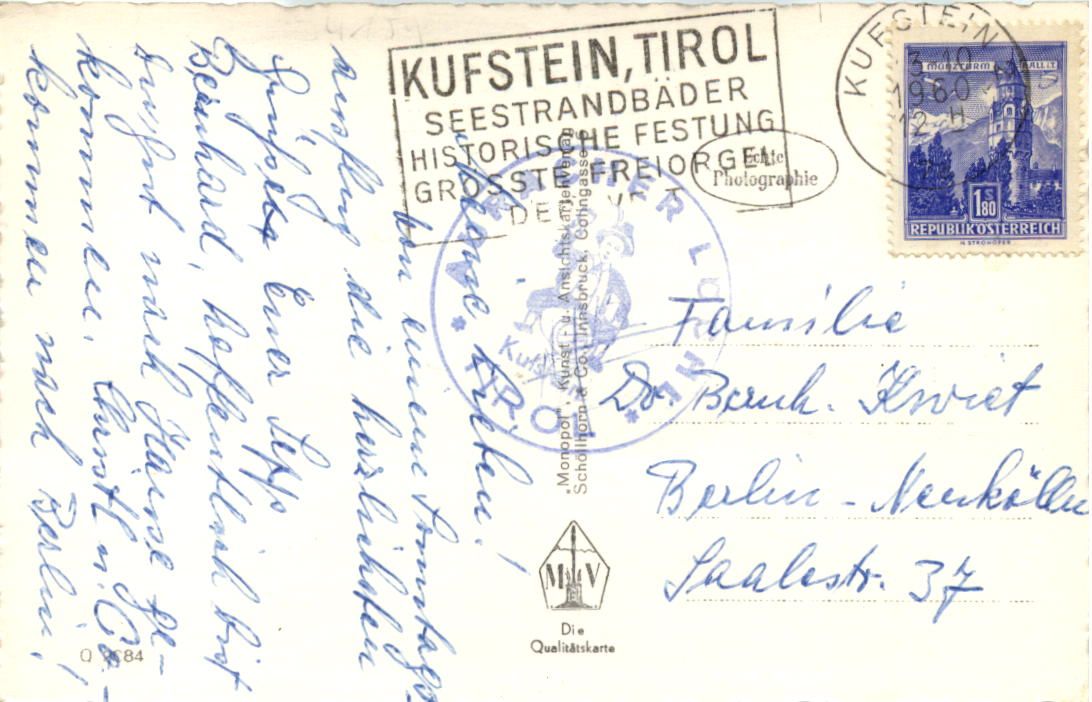 KUFSTEIN, TIROL
SEESTRANDBÄDER
HISTORISCHE FESTUNG
GRÖSSTE FREIORGEL
DER WELT
Echte
Photographie
KUFSTEIN
3.10
1960
12 H
MÜNZTURM HALL I.T.
S
1.80
REPUBLIK ÖSTERREICH
H. STROHOFER
Kufstein
* TIROL *
"Monopol", Kunst- u. Ansichtskartenverlag
Schöllhorn & Co., Innsbruck, Collingasse 5
M V
Die
Qualitätskarte
Q 9684
Meine Lieben!
Von einem Sonntags-
ausflug die herzlichsten
Grüße Euer Sepp
Bernhard, hoffentlich bist
Du gut nach Hause ge-
kommen. Christl u.
kommen nach Berlin!
Familie
Dr. Bernh. Kwiet
Berlin-Neukölln
Saalestr. 37